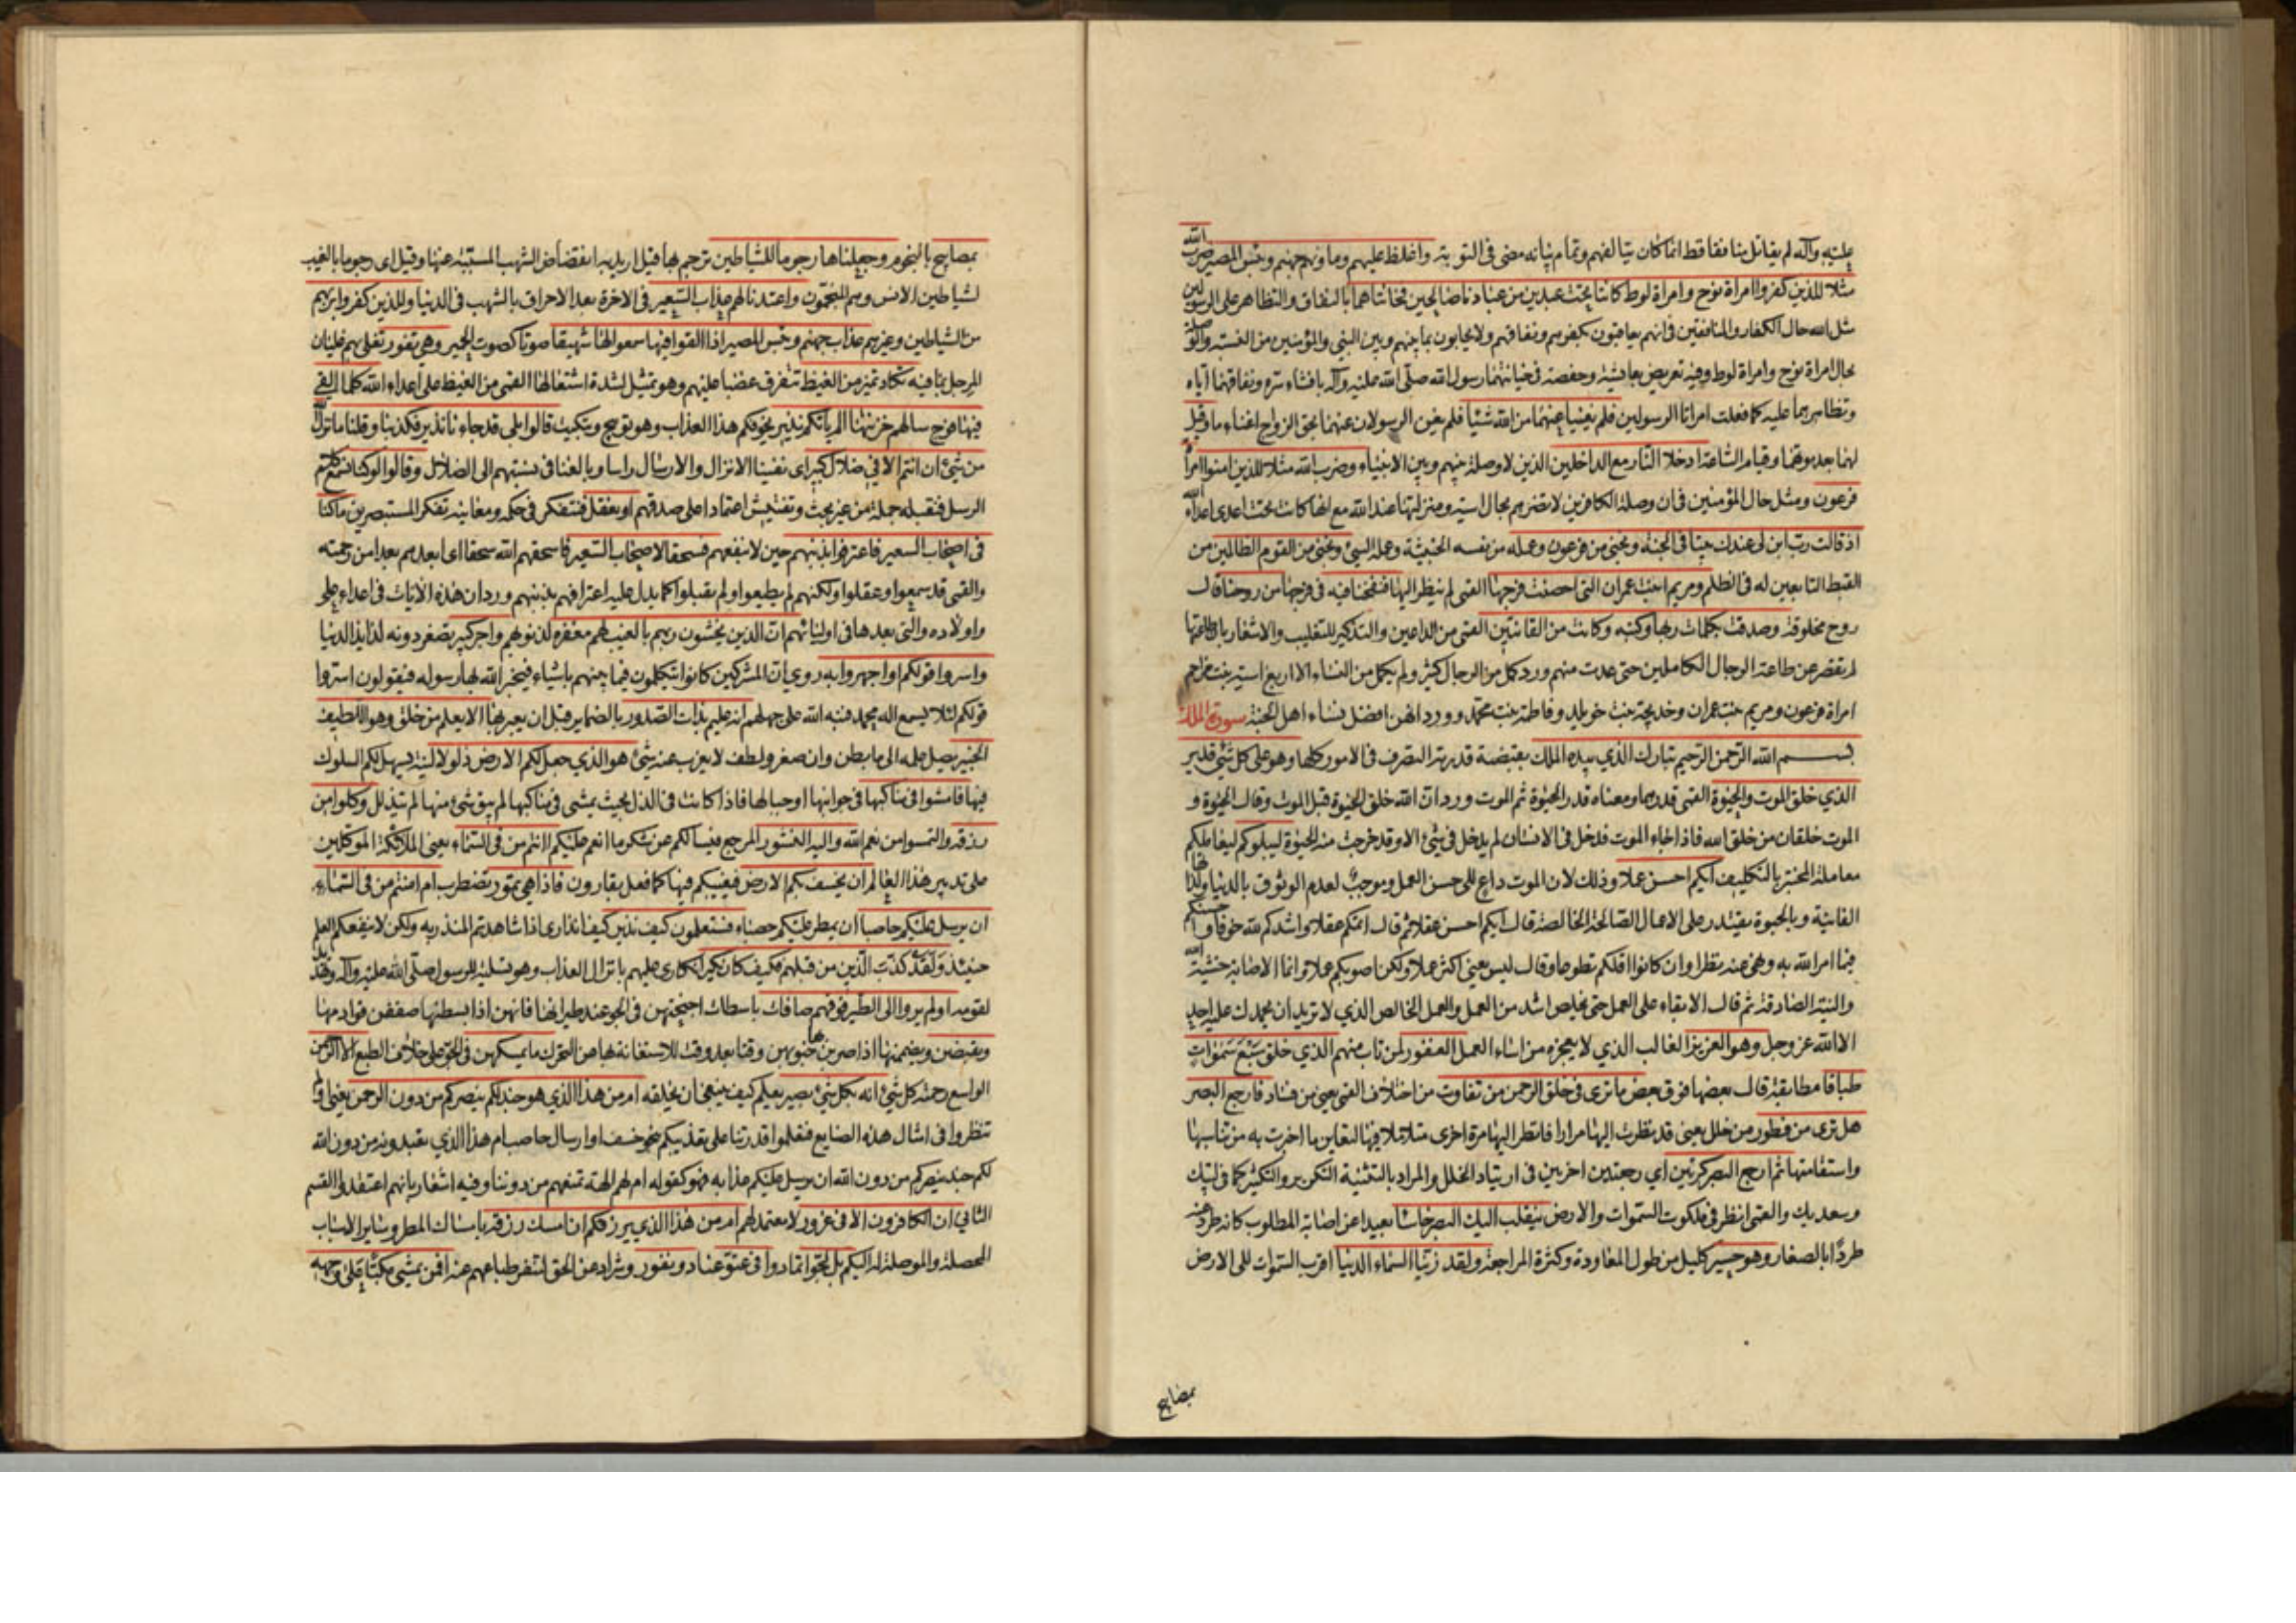 عليه وآله لم يقاتل منافقا قط انما كان يتألفهم وتمام بيانه مضى في التوبة واغلظ عليهم ومأويهم جهنم وبئس المصير ضرب الله
مثلا للذين كفروا امرأة نوح وامرأة لوط كانتا تحت عبدين من عبادنا صالحين فخانتاهما بالنفاق والتظاهر على الرسولين
مثل الله حال الكفار والمنافقين في انهم يعاقبون بكفرهم ونفاقهم ولا يحابون بما بينهم وبين النبي والمؤمنين من النسبة والوصلة
بحال امرأة نوح وامرأة لوط وفيه تعريض بعايشة وحفصة في خيانتهما رسول الله صلى الله عليه وآله بافشاء سره ونفاقهما اياه
وتظاهرهما عليه كما فعلت امرأتا الرسولين فلم يغنيا عنهما من الله شيئا فلم يغن الرسولان عنهما بحق الزواج اغناء ما وقيل
لهما بعد موتهما وقيام الساعة ادخلا النار مع الداخلين الذين لا وصلة بينهم وبين الانبياء وضرب الله مثلا للذين امنوا امرأة
فرعون ومثل حال المؤمنين في ان وصلة الكافرين لا تضرهم بحال اسية ومنزلتها عند الله مع انها كانت تحت اعدى اعداء الله
اذ قالت رب ابن لي عندك بيتا في الجنة ونجني من فرعون وعمله من نفسه الخبيثة وعمله السيئ ونجني من القوم الظالمين من
القبط التابعين له في الظلم ومريم ابنت عمران التي احصنت فرجها القمي لم ينظر اليها فنفخنا فيه في فرجها من روحنا قال
روح مخلوقة وصدقت بكلمات ربها وكتبه وكانت من القانتين القمي من الداعين والتذكير للتغليب والاشعار بان طاعتها
لم تقصر عن طاعة الرجال الكاملين حتى عدت منهم ورد كمل من الرجال كثير ولم يكمل من النساء الا اربع اسية بنت مزاحم
امرأة فرعون ومريم بنت عمران وخديجة بنت خويلد وفاطمة بنت محمد وورد انهن افضل نساء اهل الجنة سورة الملك
بسم الله الرحمن الرحيم تبارك الذي بيده الملك بقبضة قدرته التصرف في الامور كلها وهو على كل شئ قدير
الذي خلق الموت والحيوة القمي قدرهما ومعناه قدر الحيوة ثم الموت وورد ان الله خلق الحيوة قبل الموت وقال الحيوة و
الموت خلقان من خلق الله فاذا جاء الموت فدخل في الانسان لم يدخل في شئ الا وقد خرجت منه الحيوة ليبلوكم ليعاملكم
معاملة المختبر بالتكليف ايكم احسن عملا وذلك لان الموت داع الى حسن العمل وموجب لعدم الوثوق بالدنيا ولذاتها
الفانية وبالحيوة يقتدر على الاعمال الصالحة الخالصة قال ايكم احسن عقلا ثم قال اتمكم عقلا واشدكم لله خوفا واحسنكم
فيما امر الله به ونهى عنه نظرا وان كانوا اقلكم تطوعا وقال ليس يعني اكثر عملا ولكن اصوبكم عملا وانما الاصابة خشية الله
والنية الصادقة ثم قال الابقاء على العمل حتى يخلص اشد من العمل والعمل الخالص الذي لا تريد ان يحمدك عليه احد
الا الله عز وجل وهو العزيز الغالب الذي لا يعجزه من اساء العمل الغفور لمن تاب منهم الذي خلق سبع سموات
طباقا مطابقة قال بعضها فوق بعض ما ترى في خلق الرحمن من تفاوت من اختلاف القمي يعني من فساد فارجع البصر
هل ترى من فطور من خلل يعني قد نظرت اليها مرارا فانظر اليها مرة اخرى متأملا فيها لتعاين ما اخبرت به من تناسبها
واستقامتها ثم ارجع البصر كرتين اي رجعتين اخريين في ارتياد الخلل والمراد بالتثنية التكرير والتكثير كما في لبيك
وسعديك والقمي انظر في ملكوت السموات والارض ينقلب اليك البصر خاسئا بعيدا عن اصابة المطلوب كانه طرد عنه
طردا بالصغار وهو حسير كليل من طول المعاودة وكثرة المراجعة ولقد زينا السماء الدنيا اقرب السموات الى الارض
بمصابيح
بمصابيح بالنجوم وجعلناها رجوما للشياطين ترجم بها قيل اريد به انقضاض الشهب المستنبة عنها وقيل اى رجوما بالغيب
لشياطين الانس وهم المنجمون واعتدنا لهم عذاب السعير في الاخرة بعد الاحراق بالشهب في الدنيا وللذين كفروا بربهم
من الشياطين وغيرهم عذاب جهنم وبئس المصير اذا القوا فيها سمعوا لها شهيقا صوتا كصوت الحمير وهي تفور تغلي بهم غليان
المرجل بما فيه تكاد تميز من الغيظ تتفرق غضبا عليهم وهو تمثيل لشدة اشتعالها القمي من الغيظ على اعداء الله كلما القي
فيها فوج سالهم خزنتها الم يأتكم نذير يخوفكم هذا العذاب وهو توبيخ وتبكيت قالوا بلى قد جاءنا نذير فكذبنا وقلنا ما نزل الله
من شئ ان انتم الا في ضلال كبير اى نفينا الانزال والارسال راسا وبالغنا في نسبتهم الى الضلال وقالوا لو كنا نسمع كلام
الرسل فنقبله جملة من غير بحث وتفتيش اعتمادا على صدقهم او نعقل فنتفكر في حكمه ومعانيه تفكر المستبصرين ما كنا
في اصحاب السعير فاعترفوا بذنبهم حين لا ينفعهم فسحقا لاصحاب السعير فاسحقهم الله سحقا اى ابعدهم بعدا من رحمته
والقمي قد سمعوا وعقلوا ولكنهم لم يطيعوا ولم يقبلوا كما يدل عليه اعترافهم بذنبهم ورد ان هذه الايات في اعداء علي
واولاده والتي بعدها في اوليائهم ان الذين يخشون ربهم بالغيب لهم مغفرة لذنوبهم واجر كبير تصغر دونه لذايذ الدنيا
واسروا قولكم او اجهروا به روي ان المشركين كانوا يتكلمون فيما بينهم باشياء فيخبر الله بها رسوله فيقولون اسروا
قولكم لئلا يسمع اله محمد فنبه الله على جهلهم انه عليم بذات الصدور بالضماير قبل ان يعبر بها الا يعلم من خلق وهو اللطيف
الخبير يصل علمه الى ما بطن وان صغر ولطف لا يعزب عنه شئ هو الذي جعل لكم الارض ذلولا لينة يسهل لكم السلوك
فيها فامشوا في مناكبها في جوانبها او جبالها فاذا كانت في الذل بحيث يمشى في مناكبها لم يبق شئ منها لم يتذلل وكلوا من
رزقه والتمسوا من نعم الله واليه النشور المرجع فيسألكم عن شكر ما انعم عليكم أأمنتم من في السماء يعني الملائكة الموكلين
على تدبير هذا العالم ان يخسف بكم الارض فيغيبكم فيها كما فعل بقارون فاذا هي تمور تضطرب ام امنتم من في السماء
ان يرسل عليكم حاصبا ان يمطر عليكم حصباء فستعلمون كيف نذير كيف انذاري اذا شاهدتم المنذر به ولكن لا ينفعكم العلم
حينئذ ولقد كذب الذين من قبلهم فكيف كان نكير انكاري عليهم بانزال العذاب وهو تسلية للرسول صلى الله عليه وآله وتهديد
لقومه اولم يروا الى الطير فوقهم صافات باسطات اجنحتهن في الجو عند طيرانها فانهن اذا بسطنها صففن قوادمها
ويقبضن ويضممنها اذا ضربن بها جنوبهن وقتا بعد وقت للاستعانة بها على التحرك ما يمسكهن في الجو على خلاف الطبع الا الرحمن
الواسع رحمته كل شئ انه بكل شئ بصير يعلم كيف ينبغي ان يخلقه امن هذا الذي هو جند لكم ينصركم من دون الرحمن يعني اولم
تنظروا في امثال هذه الصنايع فتعلموا قدرتنا على تعذيبكم بنحو خسف او ارسال حاصب ام هذا الذي تعبدونه من دون الله
لكم جند ينصركم من دون الله ان يرسل عليكم عذابه فهو كقوله ام لهم الهة تمنعهم من دوننا وفيه اشعار بانهم اعتقدوا القسم
الثاني ان الكافرون الا في غرور لا معتمد لهم امن هذا الذي يرزقكم ان امسك رزقه بامساك المطر وساير الاسباب
المحصلة والموصلة له اليكم بل لجوا تمادوا في عتو عناد ونفور وشراد عن الحق لتنفر طباعهم عنه افمن يمشي مكبا على وجهه